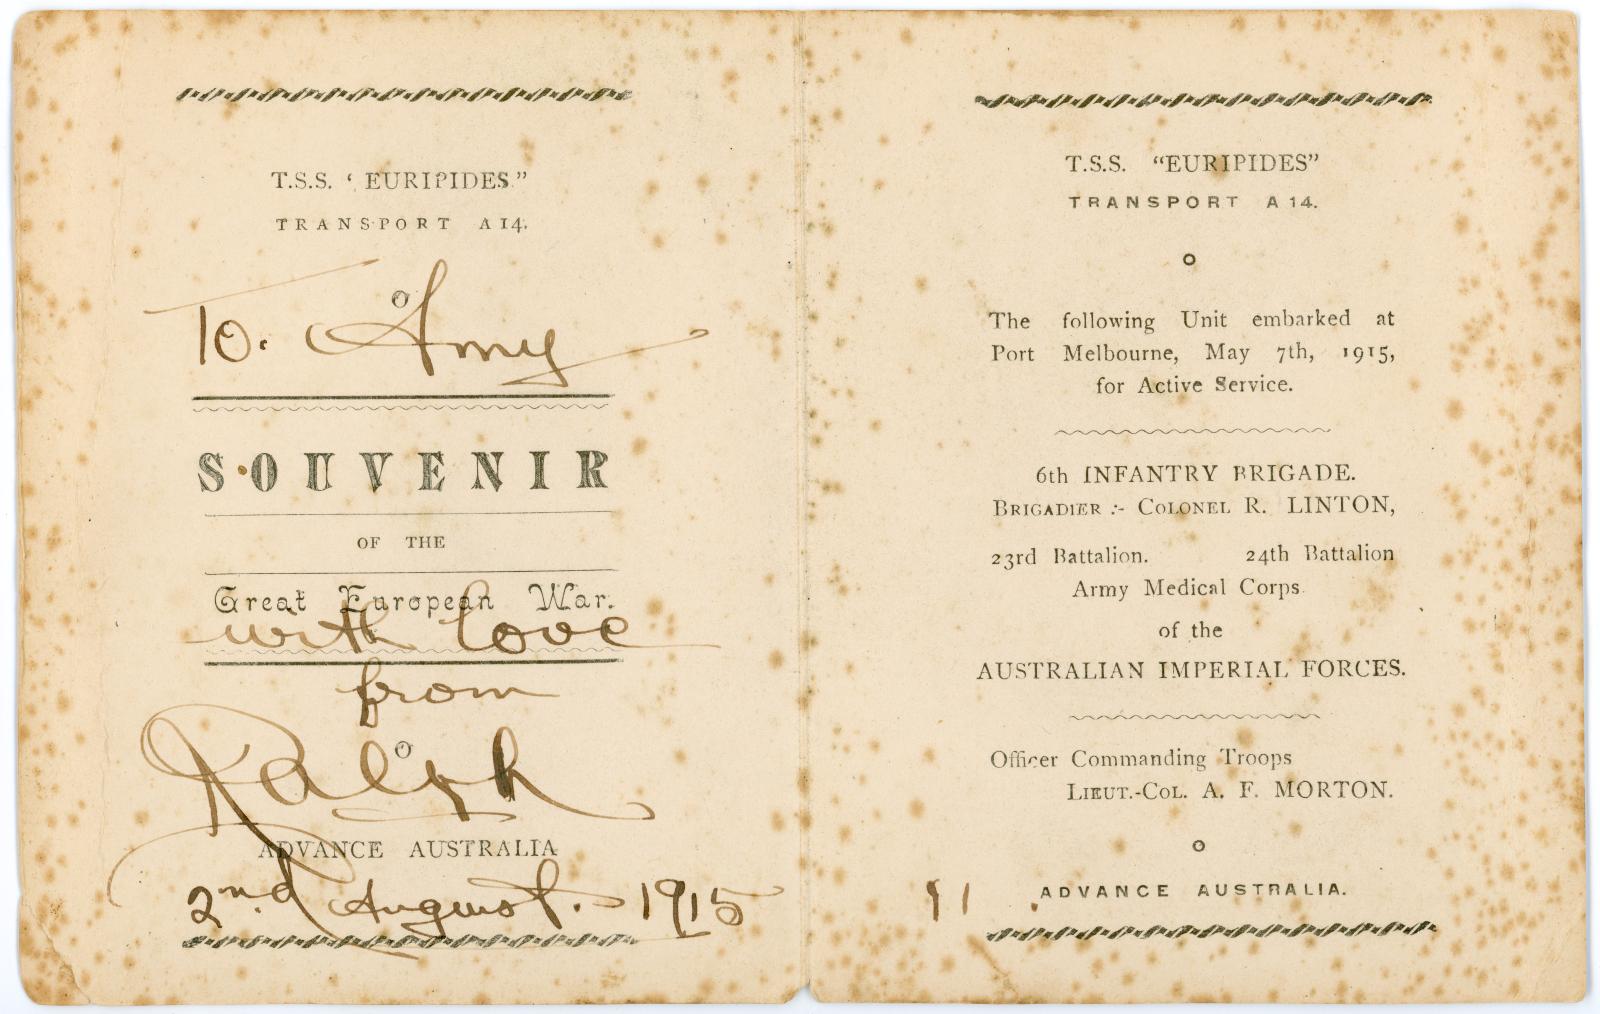 T.S.S. ‘ EURIPIDES.”
TRANSPORT A 14.
To. Amy
SOUVENIR
OF THE
Great European War.
with love
from
Ralph
ADVANCE AUSTRALIA
2nd August. 1915
T.S.S. “EURIPIDES”
TRANSPORT A 14.
The following Unit embarked at
Port Melbourne, May 7th, 1915,
for Active Service.
6th INFANTRY BRIGADE.
BRIGADIER :- COLONEL R. LINTON,
23rd Battalion. 24th Battalion
Army Medical Corps
of the
AUSTRALIAN IMPERIAL FORCES.
Officer Commanding Troops
LIEUT.-COL. A. F. MORTON.
ADVANCE AUSTRALIA.